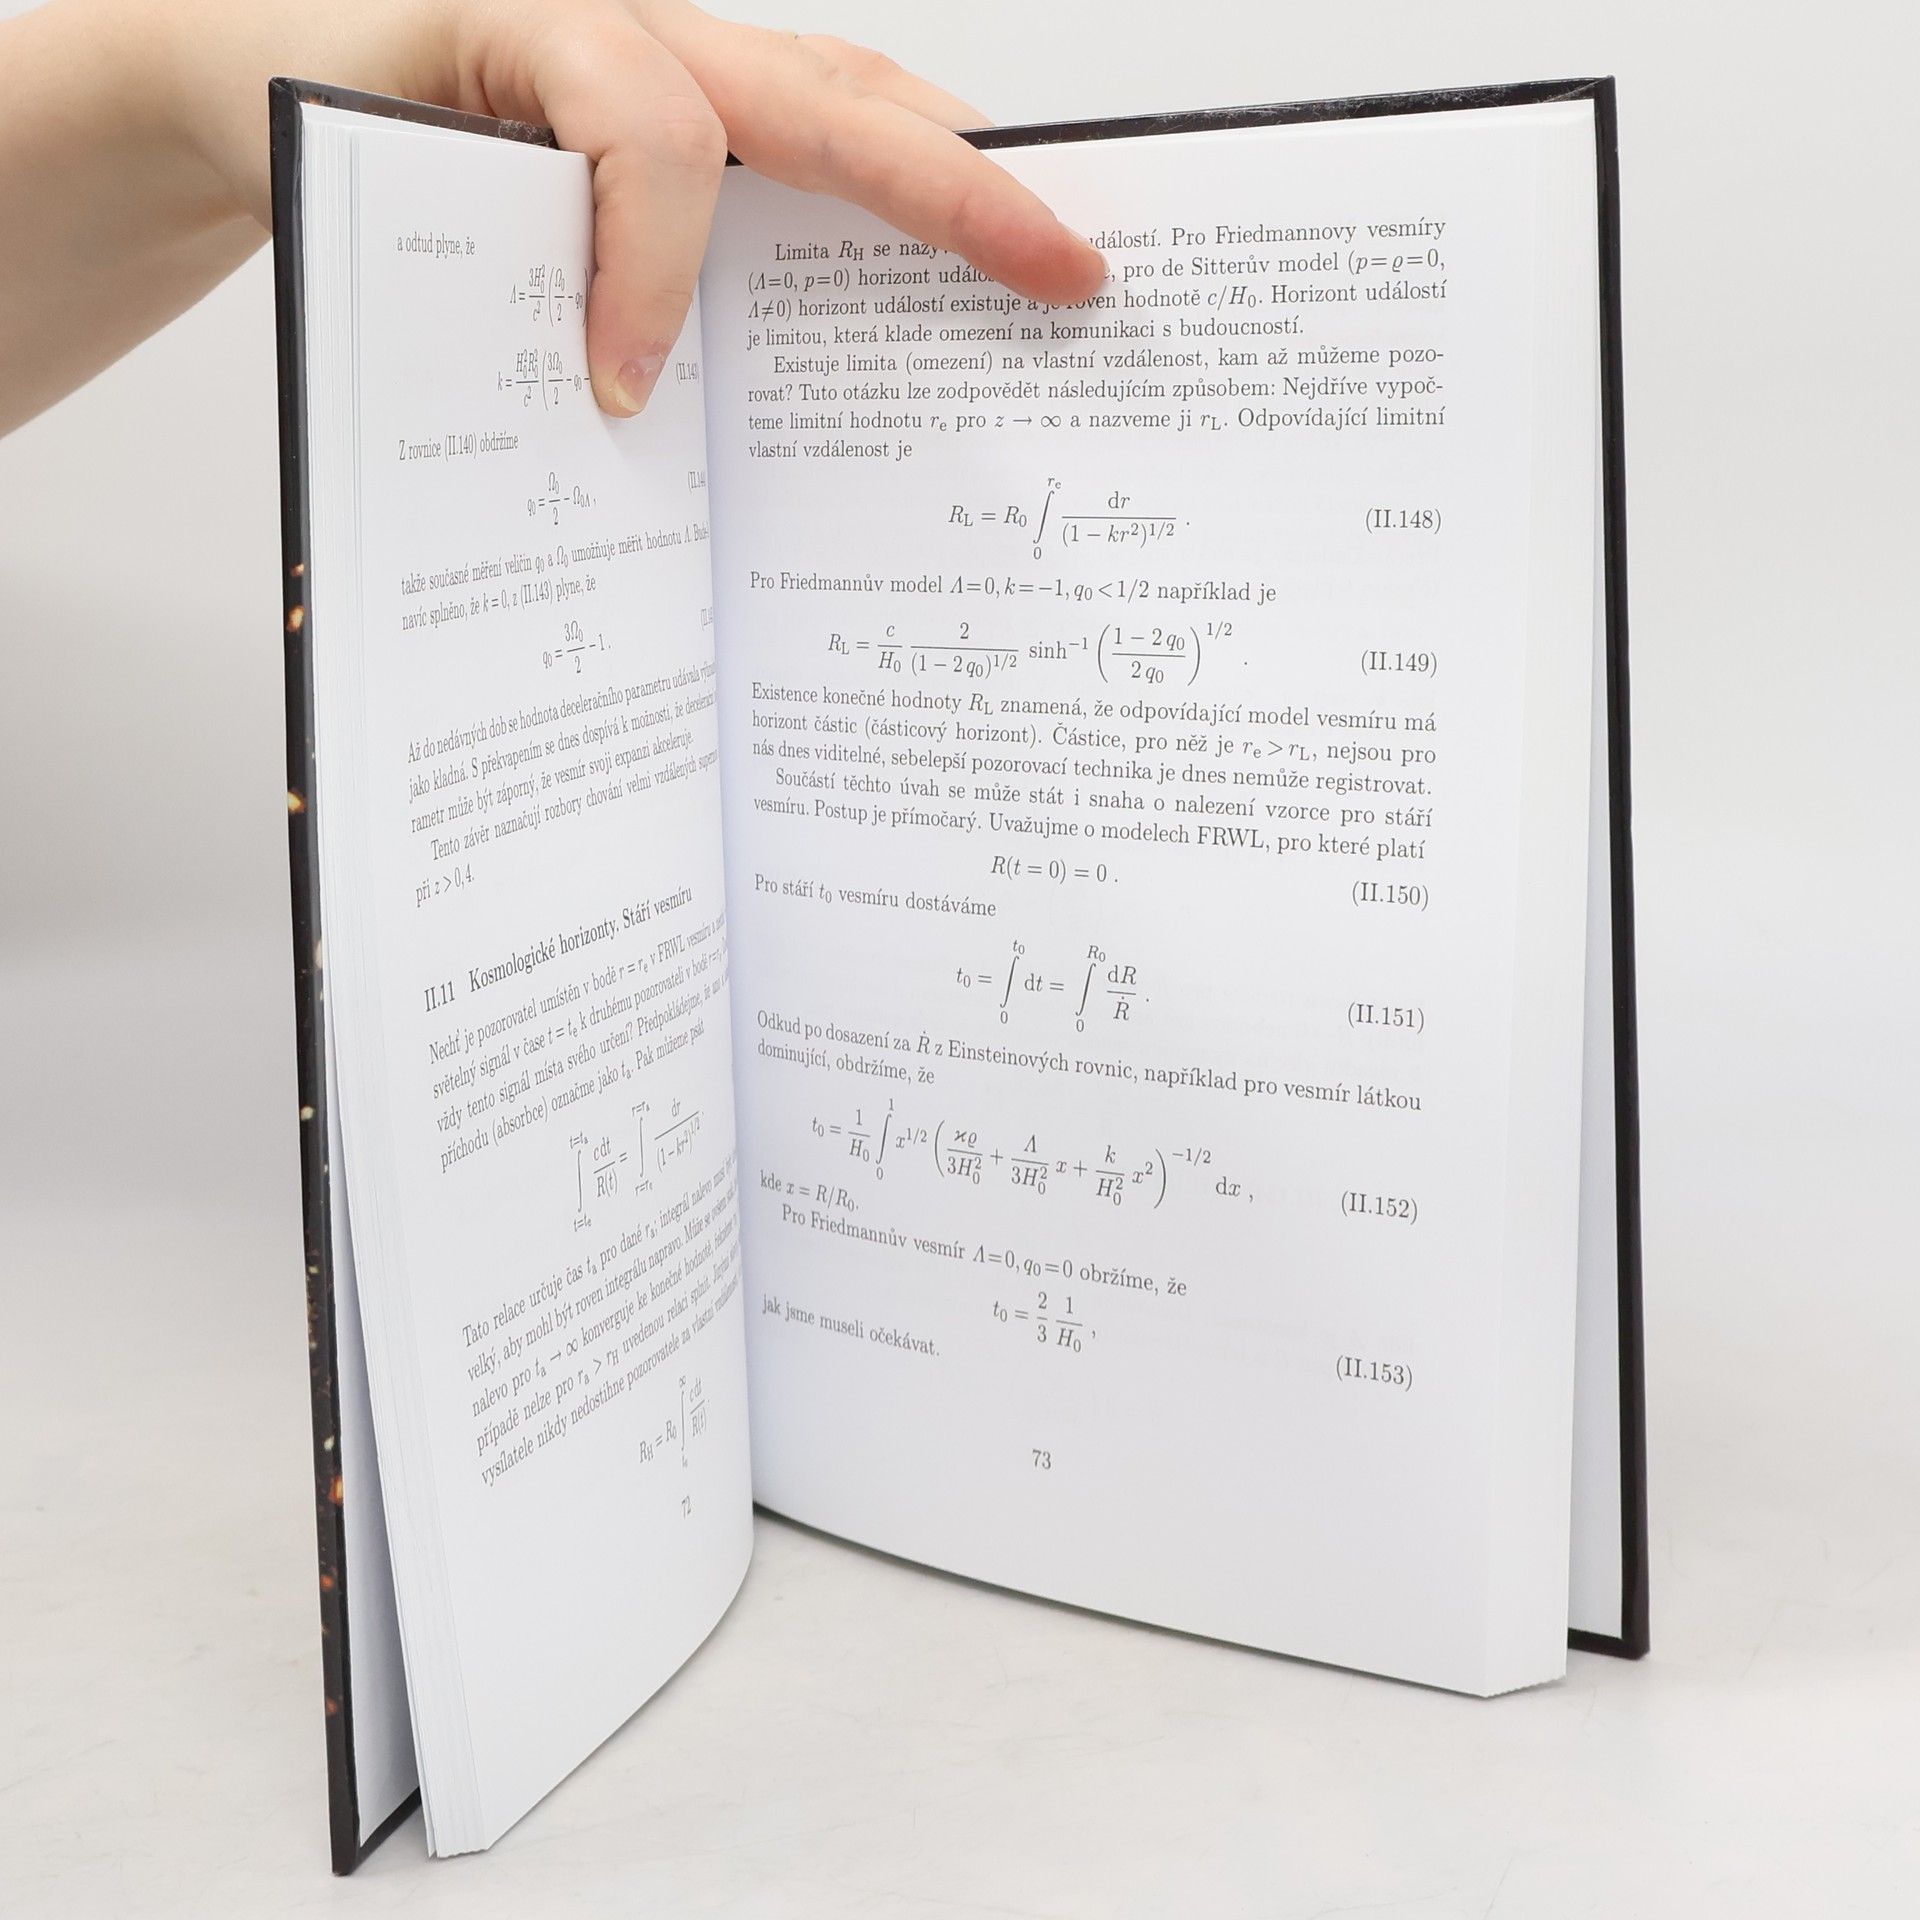 a odtud plyne, že
Λ = 3H₀²/c² (Ω₀/2 − q₀)
k = H₀²R₀²/c² (3Ω₀/2 − q₀ −
(II.143)
Z rovnice (II.140) obdržíme
q₀ = Ω₀/2 − Ω₀Λ ,
takže současné měření veličin q₀ a Ω₀ umožňuje měřit hodnotu Λ.
navíc splněno, že k = 0, z (II.143) plyne, že
q₀ = 3Ω₀/2 − 1 .
Až do nedávných dob se hodnota deceleračního parametru udávala
jako kladná. S překvapením se dnes dospívá k možnosti, že
rametr může být záporný, že vesmír svoji expanzi akceleruje.
Tento závěr naznačují rozbory chování velmi vzdálených
při z > 0,4.
II.11 Kosmologické horizonty. Stáří vesmíru
Nechť je pozorovatel umístěn v bodě r = rₑ v FRWL vesmíru a
světelný signál v čase t = tₑ k druhému pozorovateli v bodě
vždy tento signál místa svého určení? Předpokládejme, že
příchodu (absorbce) označme jako tₐ. Pak můžeme psát
∫_{t=tₑ}^{t=tₐ} cdt/R(t) = ∫_{r=rₑ}^{r=rₐ} dr/(1 − kr²)^{1/2} .
Tato relace určuje čas tₐ pro dané rₐ; integrál nalevo musí být
velký, aby mohl být roven integrálu napravo. Může se
nalevo pro tₐ → ∞ konverguje ke konečné hodnotě,
případě nelze pro rₐ > r_H uvedenou relaci splnit.
vysílatele nikdy nedostihne pozorovatele za vlastní
R_H = R₀ ∫_{tₑ}^{∞} cdt/R(t) .
72
Limita R_H se událostí. Pro Friedmannovy vesmíry
(Λ=0, p=0) horizont , pro de Sitterův model (p=ϱ=0,
Λ≠0) horizont událostí existuje a je roven hodnotě c/H₀. Horizont událostí
je limitou, která klade omezení na komunikaci s budoucností.
Existuje limita (omezení) na vlastní vzdálenost, kam až můžeme pozo-
rovat? Tuto otázku lze zodpovědět následujícím způsobem: Nejdříve vypoč-
teme limitní hodnotu rₑ pro z → ∞ a nazveme ji r_L. Odpovídající limitní
vlastní vzdálenost je
R_L = R₀ ∫₀^{rₑ} dr/(1 − kr²)^{1/2} . (II.148)
Pro Friedmannův model Λ=0, k=−1, q₀<1/2 například je
R_L = c/H₀ 2/(1 − 2q₀)^{1/2} sinh⁻¹ ((1 − 2q₀)/2q₀)^{1/2} . (II.149)
Existence konečné hodnoty R_L znamená, že odpovídající model vesmíru má
horizont částic (částicový horizont). Částice, pro něž je rₑ>r_L, nejsou pro
nás dnes viditelné, sebelepší pozorovací technika je dnes nemůže registrovat.
Součástí těchto úvah se může stát i snaha o nalezení vzorce pro stáří
vesmíru. Postup je přímočarý. Uvažujme o modelech FRWL, pro které platí
R(t = 0) = 0 . (II.150)
Pro stáří t₀ vesmíru dostáváme
t₀ = ∫₀^{t₀} dt = ∫₀^{R₀} dR/Ṙ . (II.151)
Odkud po dosazení za Ṙ z Einsteinových rovnic, například pro vesmír látkou
dominující, obdržíme, že
t₀ = 1/H₀ ∫₀¹ x^{1/2} (ϰϱ/3H₀² + Λ/3H₀² x + k/H₀² x²)^{−1/2} dx , (II.152)
kde x = R/R₀.
Pro Friedmannův vesmír Λ=0, q₀=0 obržíme, že
t₀ = 2/3 1/H₀ , (II.153)
jak jsme museli očekávat.
73